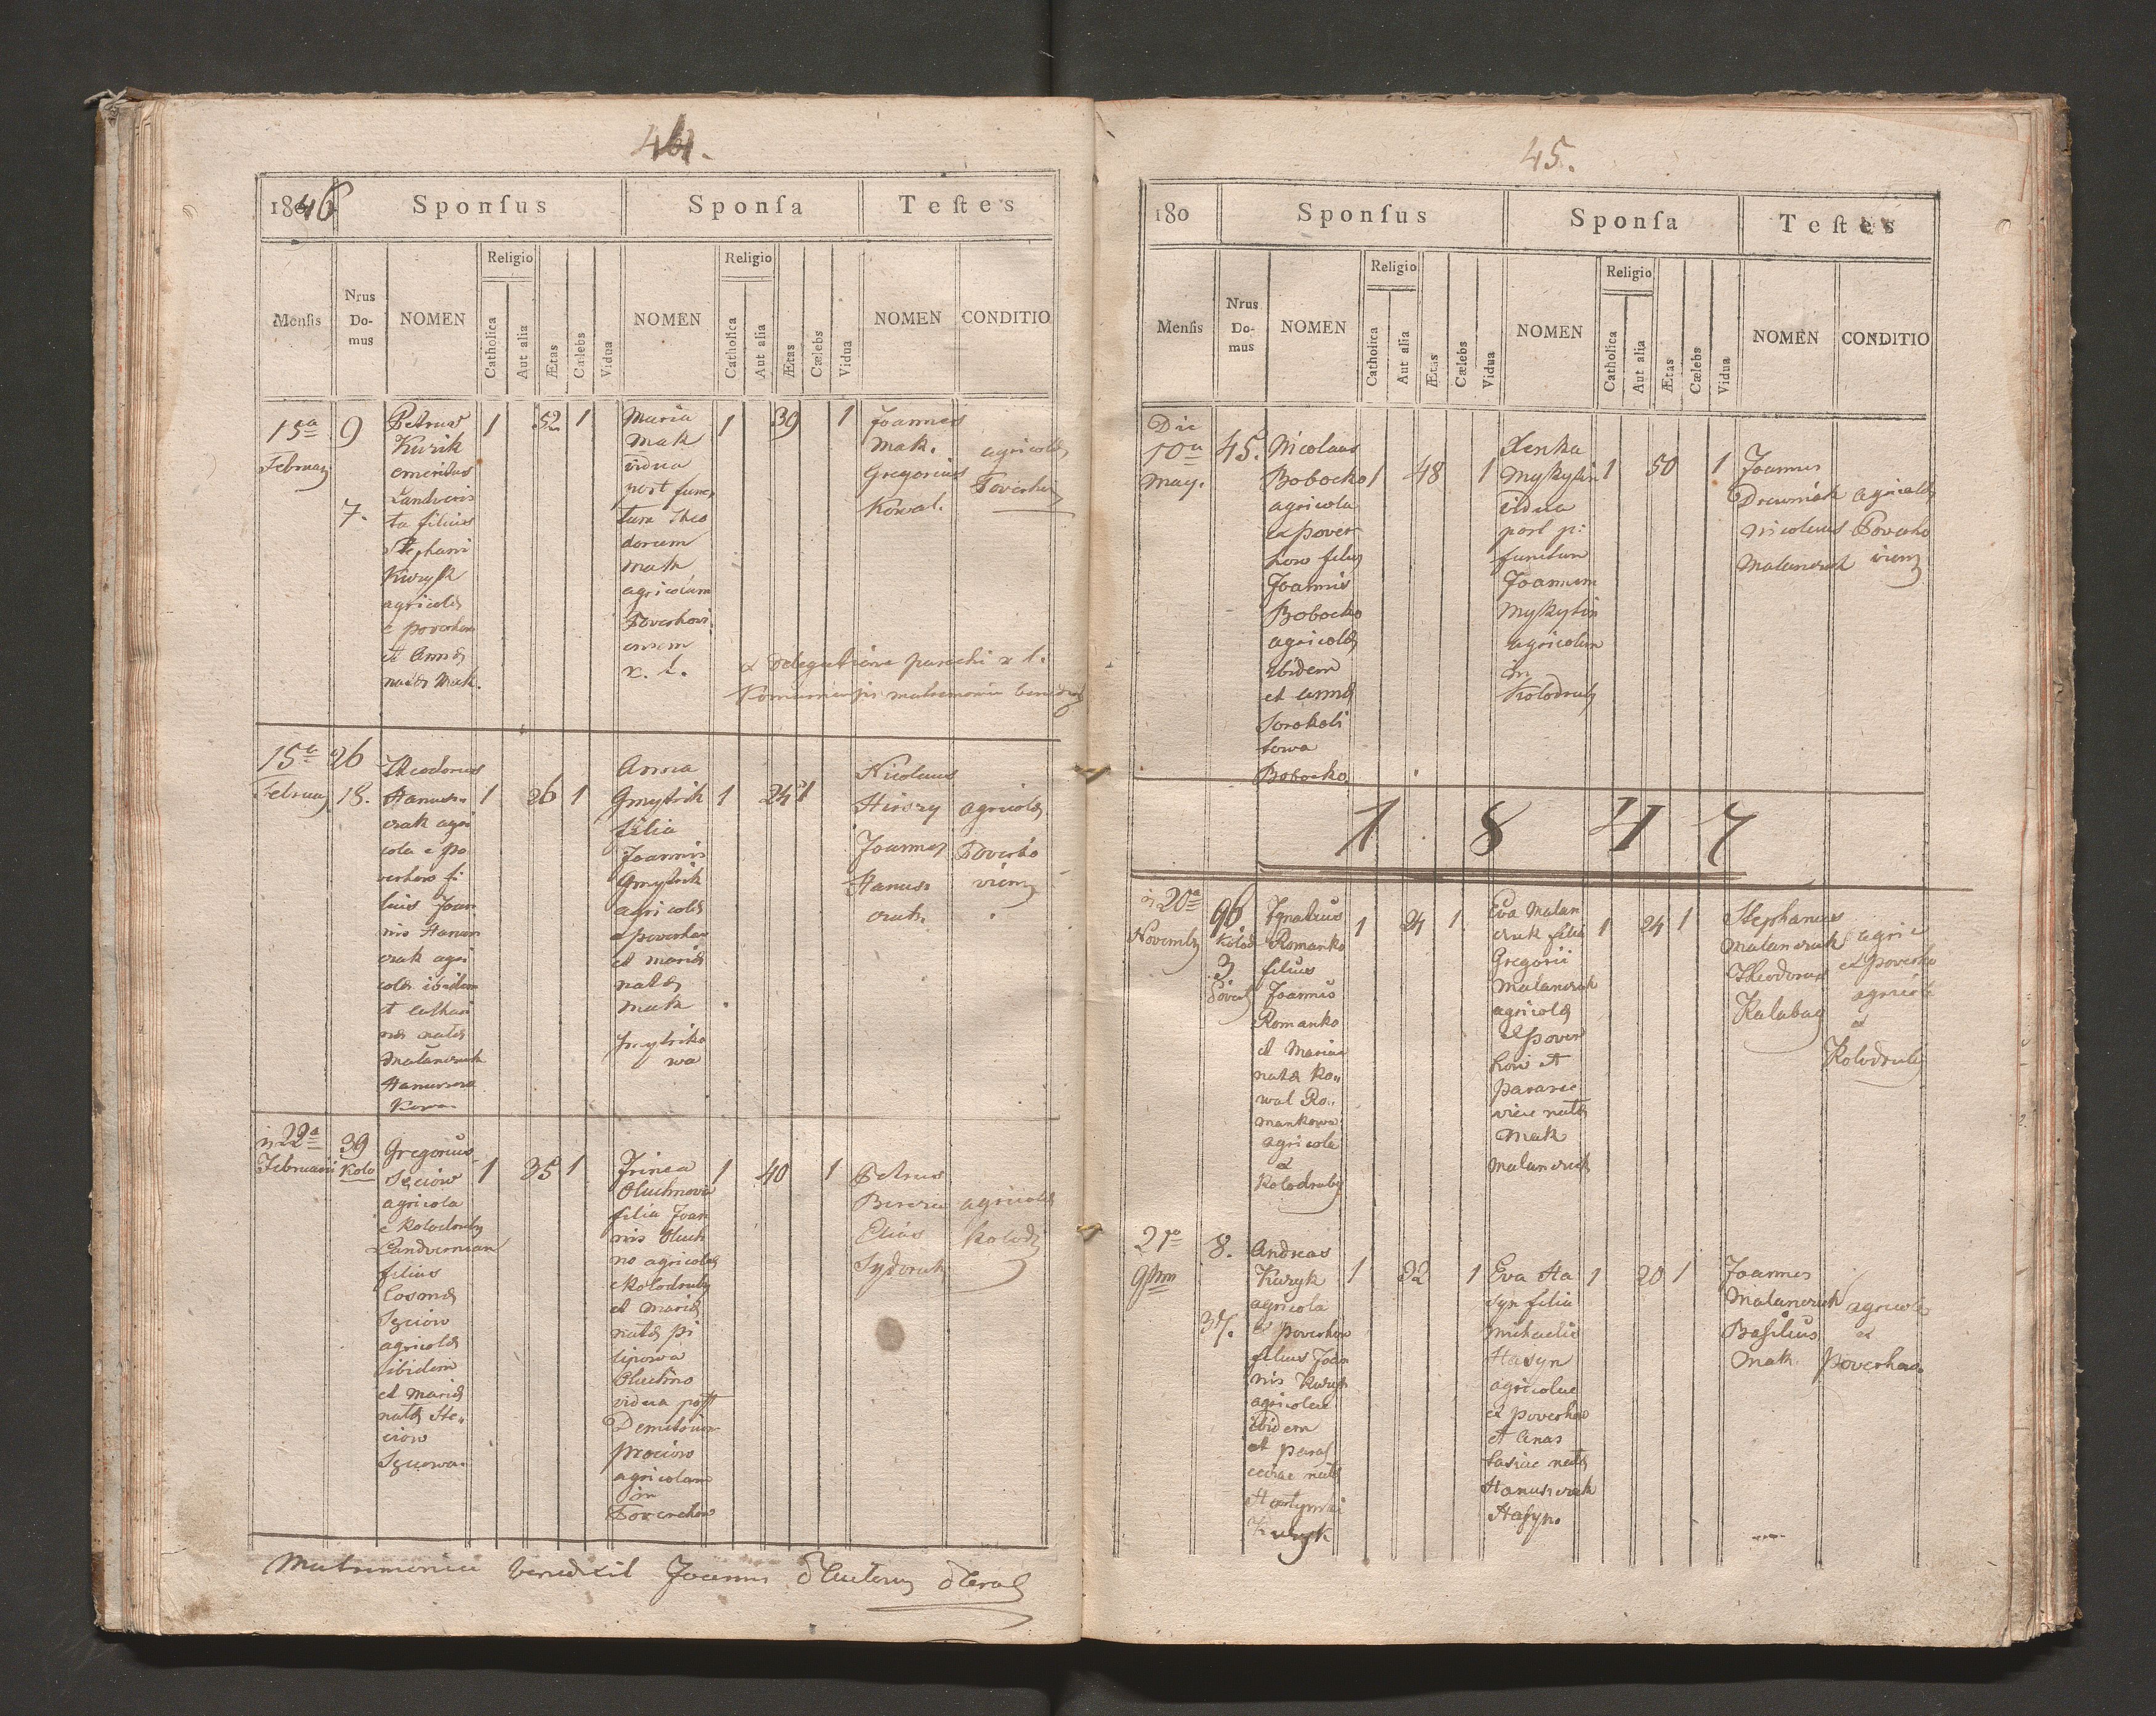 44.
1846
Sponsus
Sponsa
Testes
Mensis
Nrus Domus
NOMEN
Religio
Catholica
Aut alia
Ætas
Cælebs
Vidua
NOMEN
Religio
Catholica
Aut alia
Ætas
Cælebs
Vidua
NOMEN
CONDITIO
15a
Februarÿ
9
7.
Petrus
Kurik
emeritus
Landveris
ta filius
Stephani
Kuryk
agricolæ
e Poverhow
et Annæ
natæ Mak.
1
52
1
Maria
Mak
vidua
post func
tum Theo
dorum
Mak
agricolam
Poverhovi
ensem
r. l.
1
39
1
Joannes
Mak.
Gregorius
Kowal.
agricolæ
Poverhow
ex delegatione parochi r. l.
15a
Februarÿ
26
18.
Theodorus
Hanus
czak agri
cola e Po
verhow fi
lius Joan
nis Hanus
czak agri
colæ ibidem
et Cathari
næ natæ
Malanczuk
1
26
1
Anna
Gmytrik
filia
Joannis
Gmytrik
agricolæ
e Poverhow
et Mariæ
natæ
Mak
1
24
1
Nicolaus
Joannes
Hanus
czak.
agricolæ
Poverho
viens
22a
Februarii
39
Kolo
Gregorius
agricola
e Kolodruby
filius
Cosmæ
agricolæ
ibidem
et Mariæ
natæ Ste„
ciow
1
35
1
filia Joan
nis Oluch
no agricolæ
e Kolodruby
et Mariæ
natæ Pi
lipowa
Oluchno
vidua post
agricolam
in
Poverchow
1
40
1
Petrus
Elias
agricolæ
Kolodr
Matrimonia benedixit Joannes
45.
180
Sponsus
Sponsa
Testes
Mensis
Nrus Domus
NOMEN
Religio
Catholica
Aut alia
Ætas
Cælebs
Vidua
NOMEN
Religio
Catholica
Aut alia
Ætas
Cælebs
Vidua
NOMEN
CONDITIO
Die
10a
May.
45.
Nicolaus
Bobocko
agricola
ex Pover
how filius
Joannis
Bobocko
agricolæ
ibidem
et Annæ
Sorokoli
towa
Bobocko
1
48
1
Xenka
Mykytin
vidua
post
functum
Joannem
Mykytin
agricolam
in
Kolodruby
1
50
1
Joannes
Nicolaus
Malanczuk
agricolæ
Poverho
viens
1847
20a
Novembr
96
Kolod
3
Pover
Ignatius
Romanko
filius
Joannis
Romanko
et Mariae
natæ Ko„
wal Ro„
mankowa
agricola
ex
Kolodruby
1
24
1
Eva Malan
czuk filia
Gregorii
Malanczuk
agricolæ
ex Pover
how et
Parasce
viae natæ
Mak
Malanczuk
1
24
1
Stephanus
Malanczuk
Theodorus
Kalabay
agric
ex Poverho
agricol
ex
Kolodruby
21a
9bris
8.
37.
Andreas
Kuryk
agricola
ex Poverhow
filius Joan
nis Kuryk
agricolae
ibidem
et Paras
ceviae natæ
Kuryk
1
32
1
Eva Ha
syn filia
Michaelis
Hasyn
agricolae
ex Poverhow
et Anas
tasiae natæ
Hanusczak
Hasyn.
1
20
1
Joannes
Malanczuk
Basilius
Mak
agricolæ
ex
Poverhow.